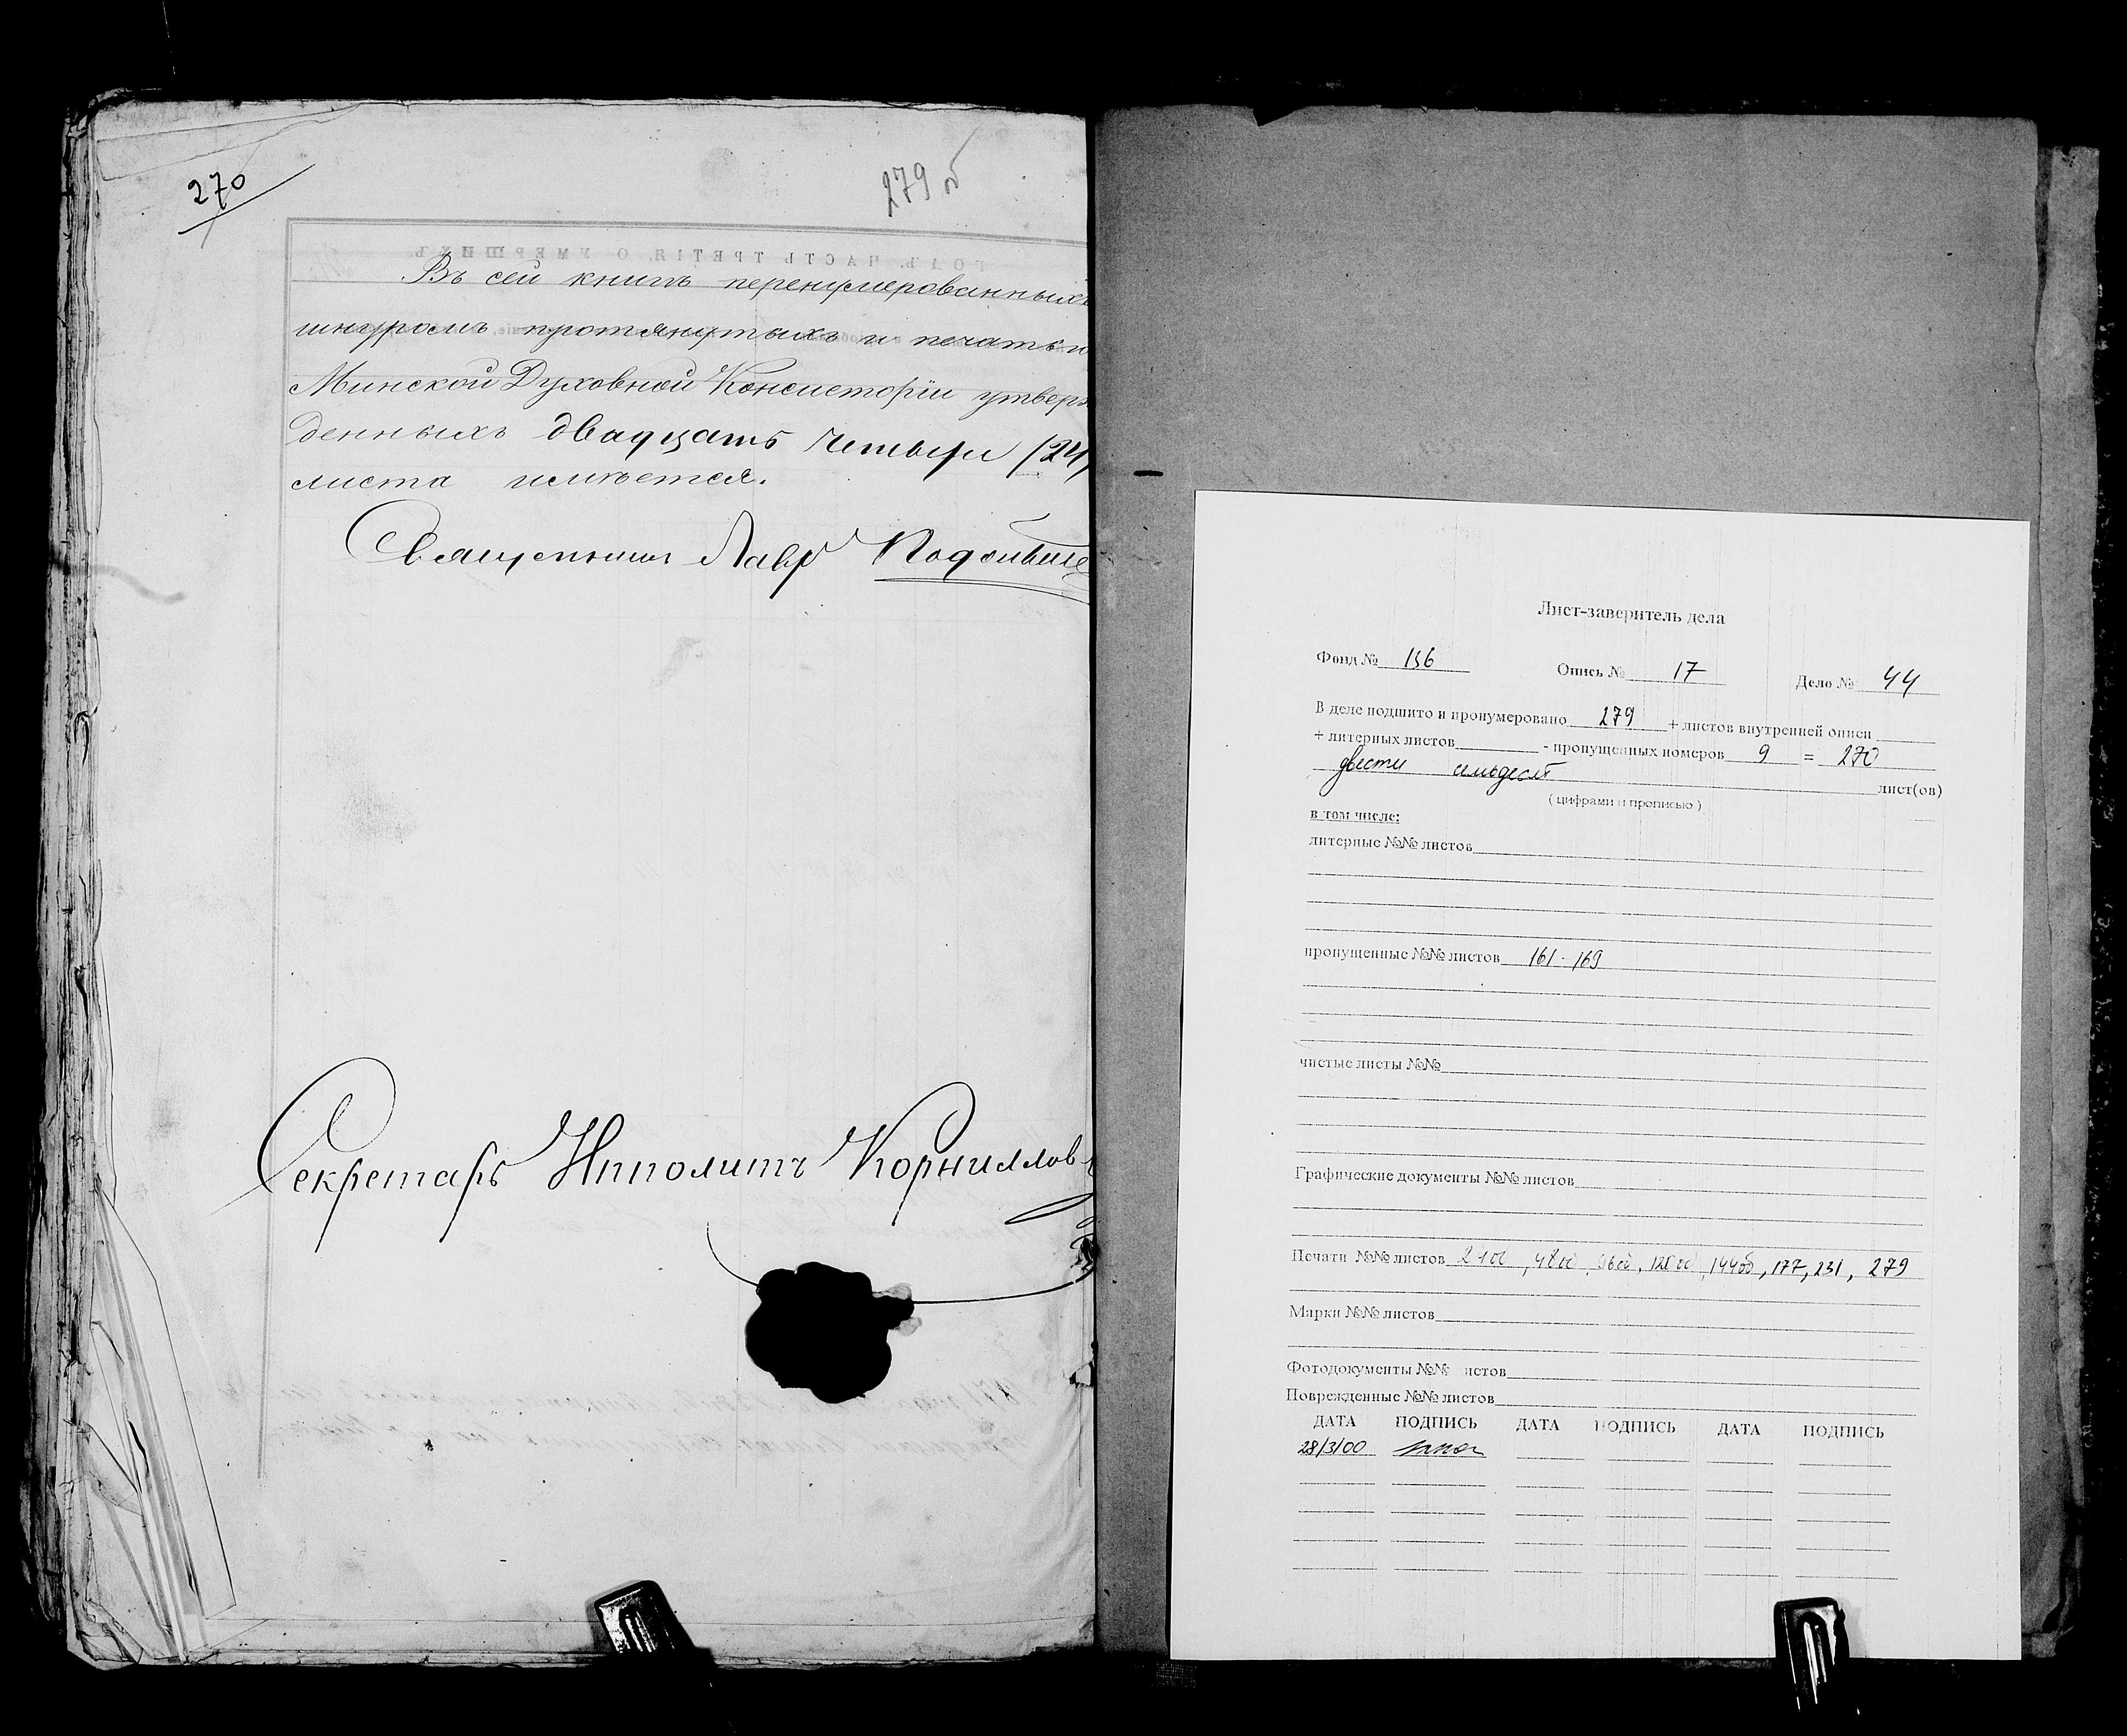 270
279 об
Въ сей книгѣ перенумерованныхъ
шнуромъ протянутыхъ и печатью
Минской Духовной Консисторіи утверж
денныхъ двадцать четыре (24)
листа имѣется.
Священникъ Лавр
Секретарь Ипполитъ Корниллов
Лист-заверитель дела
Фонд № 136 Опись № 17 Дело № 44
В деле подшито и пронумеровано 279 + листов внутренней описи
+ литерных листов - пропущенных номеров 9 = 270
двести семьдесят лист(ов)
( цифрами и прописью )
в том числе:
литерные №№ листов
пропущенные №№ листов 161 - 169
чистые листы №№
Графические документы №№ листов
Печати №№ листов 48об, 144об, 177, 231, 279
Марки №№ листов
Фотодокументы №№ листов
Поврежденные №№ листов
ДАТА ПОДПИСЬ ДАТА ПОДПИСЬ ДАТА ПОДПИСЬ
28/3/00